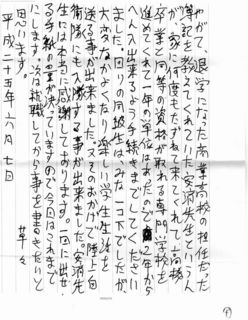 やがて、退学になった商業高校の担任だった
簿記を教えてくれていた安消先生という人
が、家に何度もたずねて来てくれて、高校
卒業と同等の資格が取れる専門学校を
進めてくれて一年の単位はあるので2年から
へん入出来るよう手続きまでしてください
ました。回りの同級生はみな一コ下でしたが
大変なかよくなり楽しい学生生活を
送る事が出来ました。又そのおかげで陸上自
衛隊にも入隊する事が出来ました。安消先
生には本当に感謝しております。一回に出せ
る手紙の量が決っていますので今回はこれまで
にします。次は就職してからの事を書きたいと
思います。
草々
平成二十五年六月七日